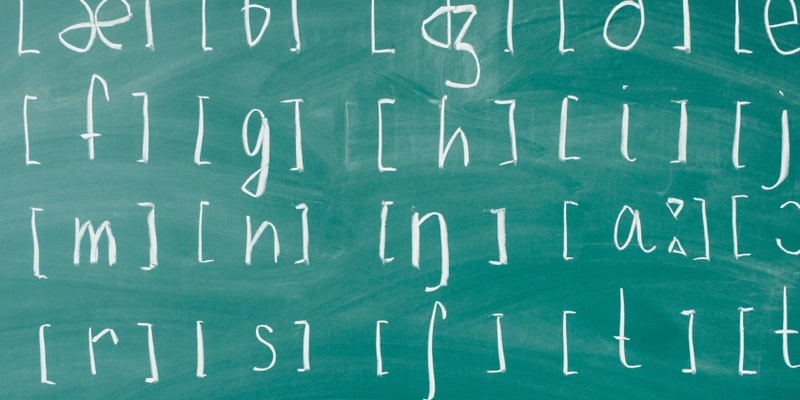 [æ] [b] [ʤ] [ ] [e
[f] [g] [h] [i] [j
[m] [n] [ŋ] [aː] [ɔ
[r] [s] [ʃ] [t] [t